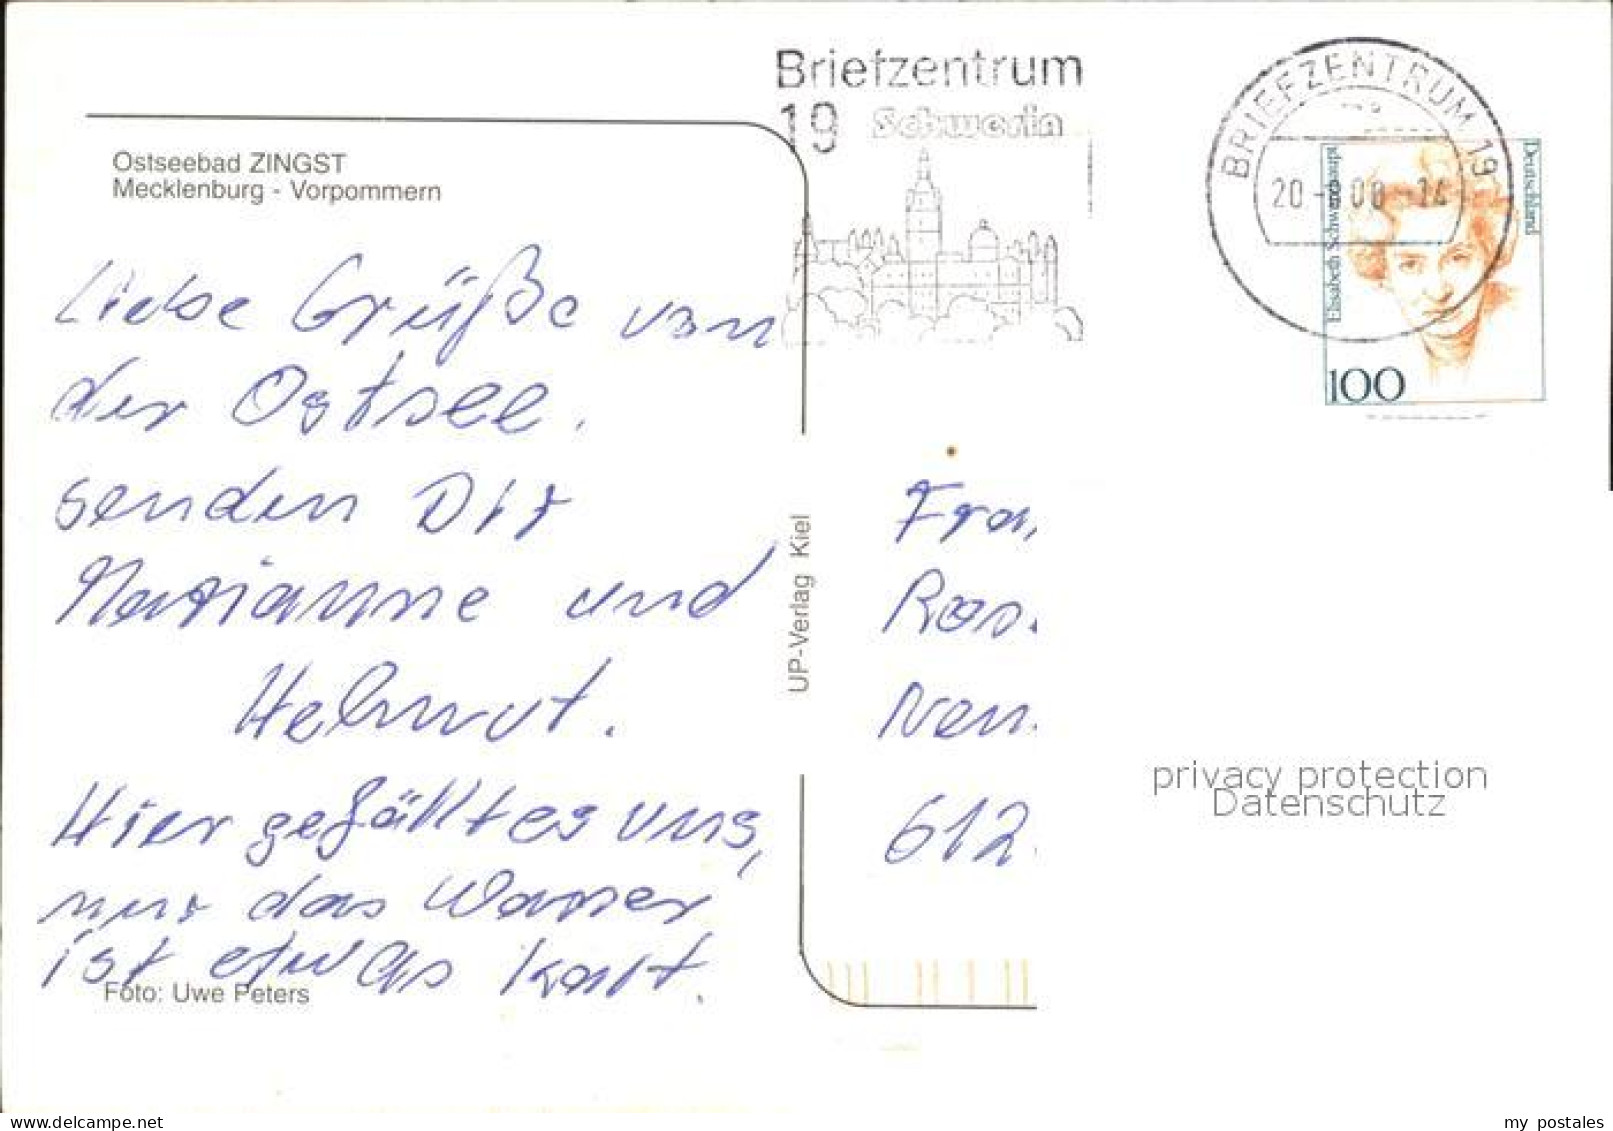 Briefzentrum
19 Schwerin
BRIEFZENTRUM 19
Deutschland
Elisabeth Schwarzhaupt
100
Ostseebad ZINGST
Mecklenburg - Vorpommern
Liebe Grüße von
der Ostsee.
senden Dir
Marianne und
Helmut.
Hier gefällt es uns,
nur das Wasser
ist etwas kalt.
Foto: Uwe Peters
UP-Verlag Kiel
612
privacy protection
Datenschutz
delcampe.net
my_postales